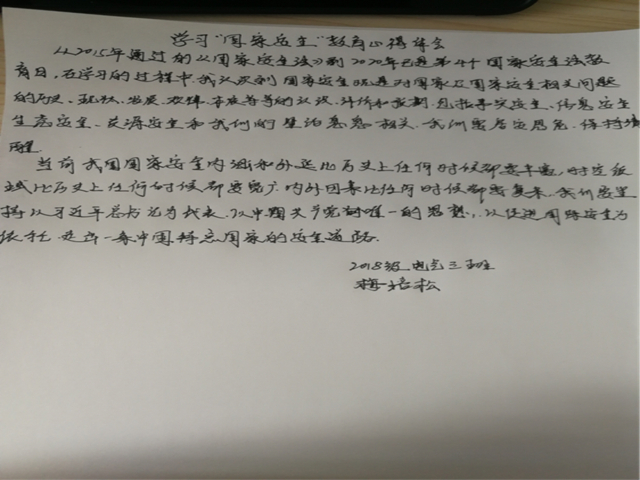 学习“国家安全”教育心得体会
从2015年通过的《国家安全法》到2020年已是第4个国家安全法教
育日,在学习的过程中我认识到国家安全既是对国家及国家安全相关问题
的历史、现状、发展、规律、本质等等的认识、评价和预测,包括军事安全、信息安全
生态安全、资源安全和我们的生活息息相关,我们要居安思危、保持清
醒
当前我国国家安全内涵和外延比历史上任何时候都要丰富,时空领
域比历史上任何时候都要宽广,内外因素比任何时候都要复杂,我们要坚
持以习近平总书记为代表,以中国共产党为唯一的思想,以促进国际安全为
依托,走出一条中国特色国家的安全道路.
2018级 电气三班
梅培松